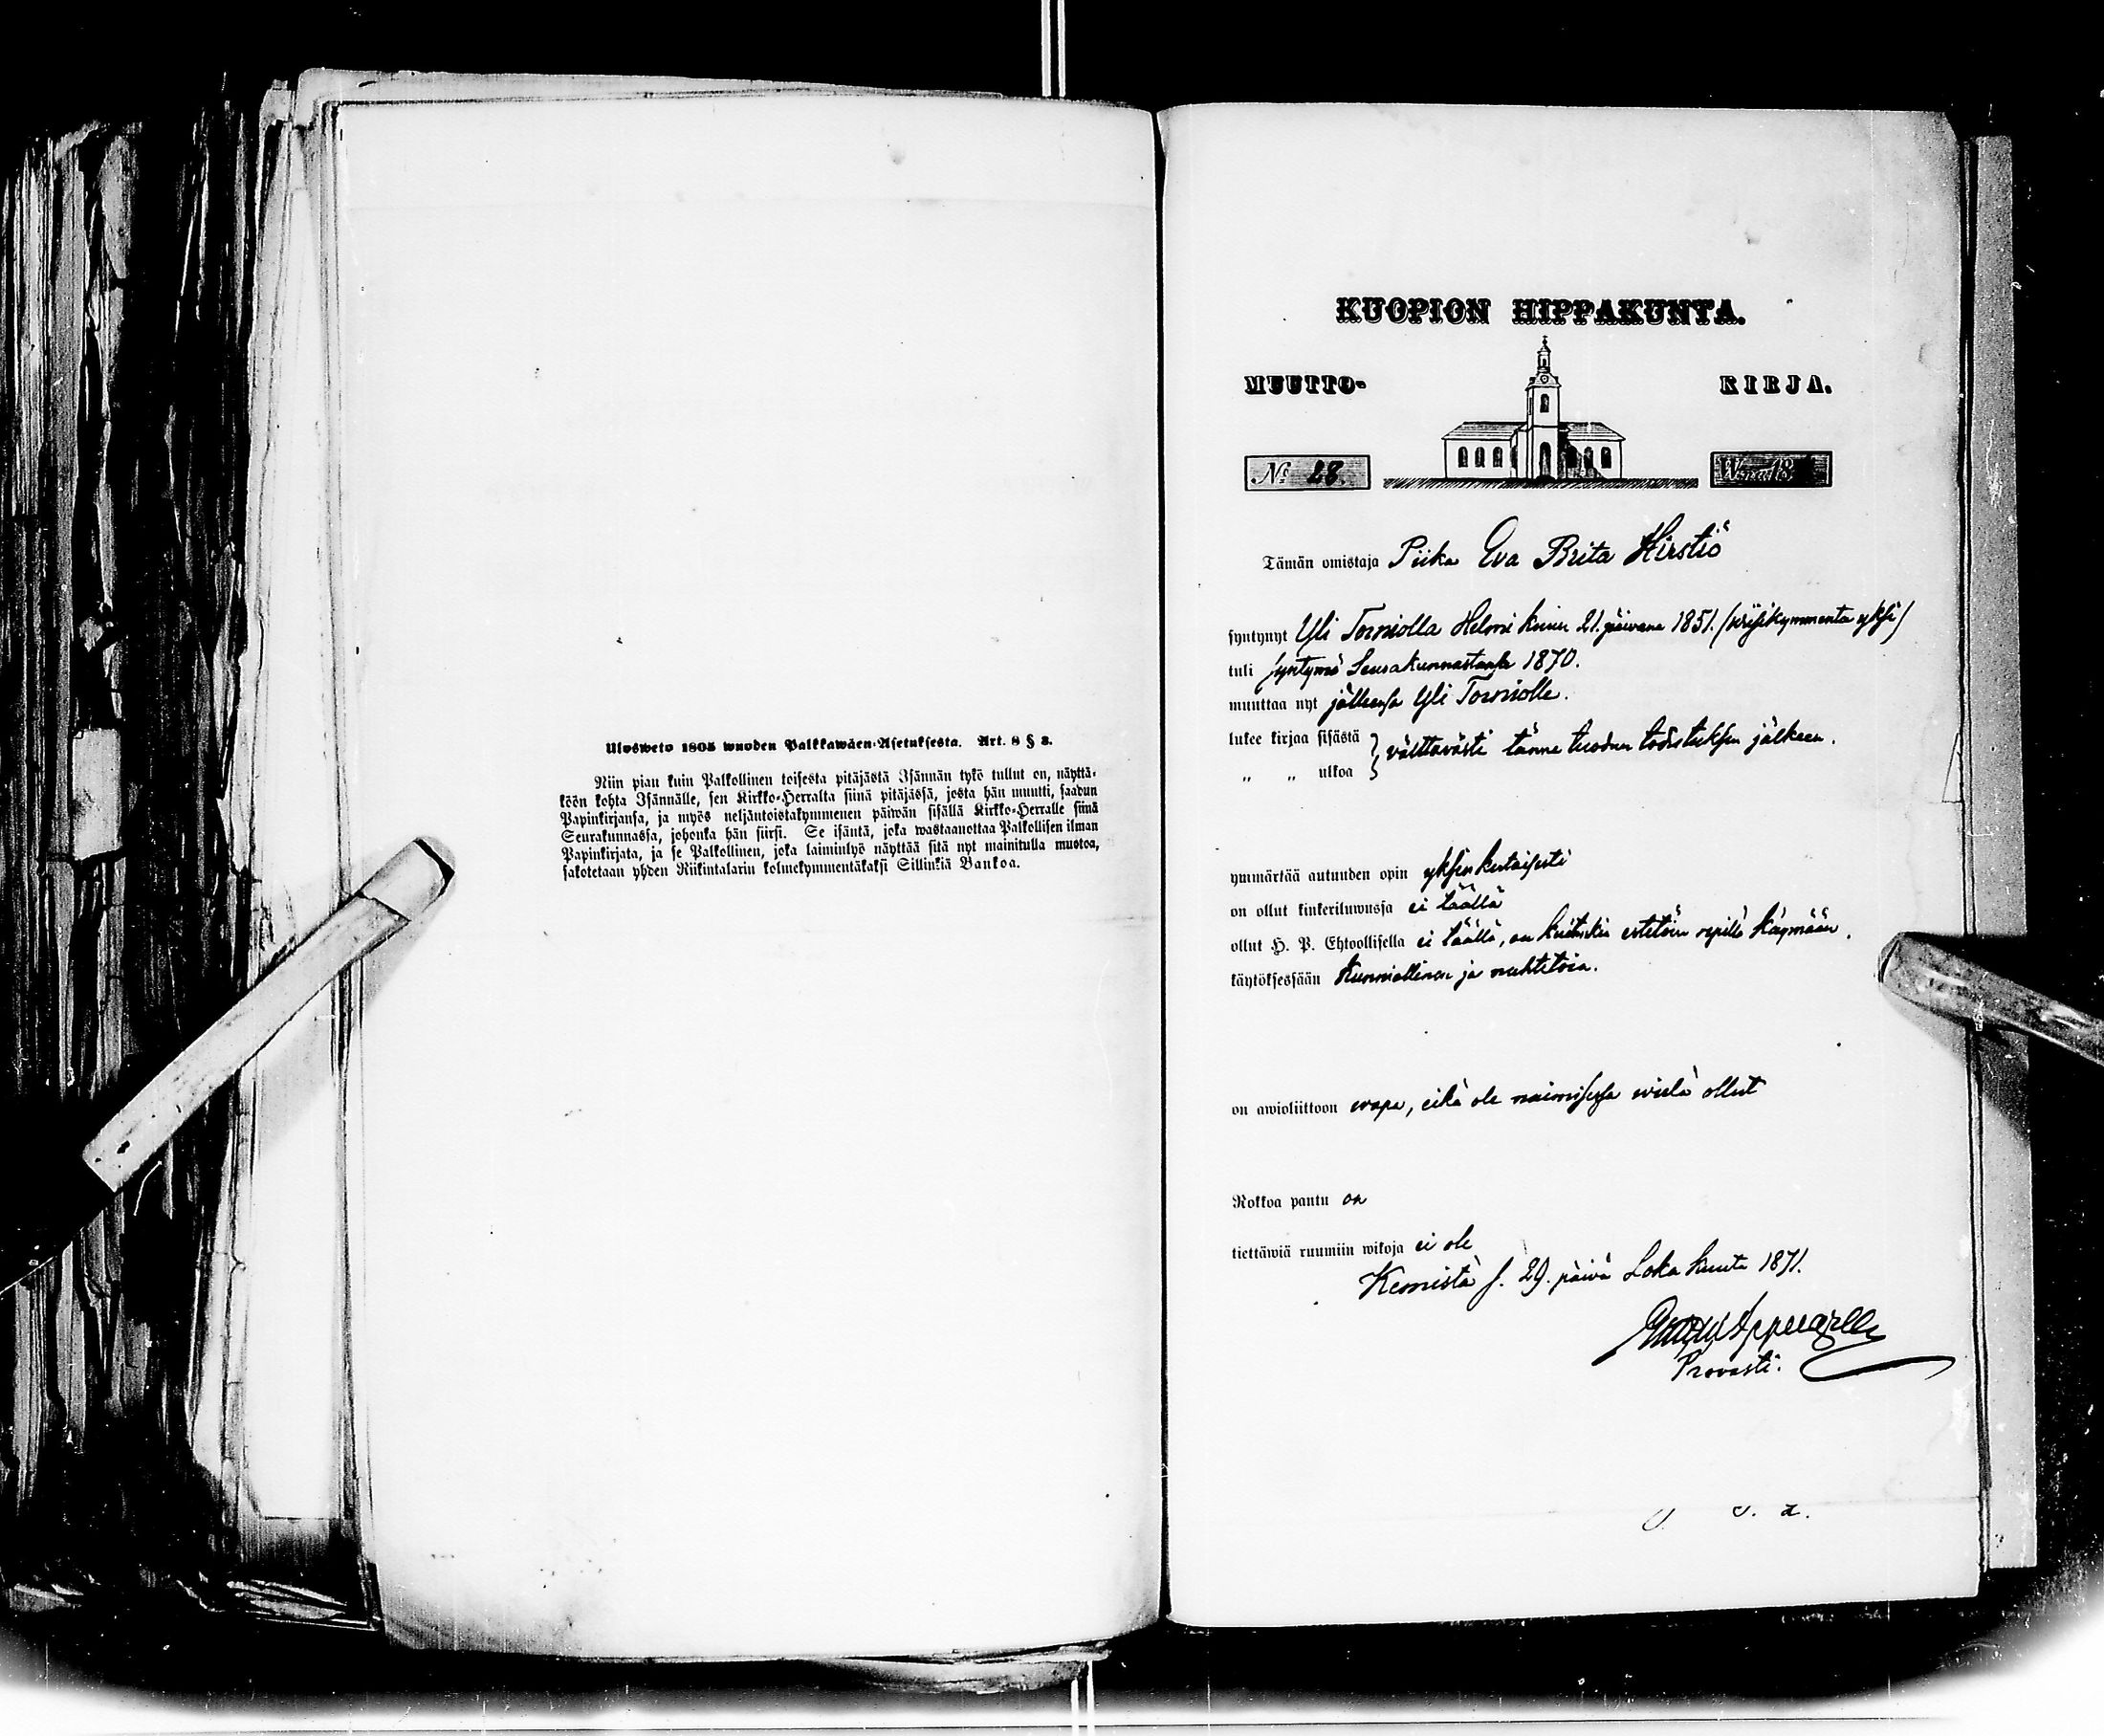 Ulosweto 1805 wuoden Palkkawäen-Asetuksesta. Art. 8 § 3.
Niin pian kuin Palkollinen toisesta pitäjästä Isännän tykö tullut on, näyttä-
köön kohta Isännälle, sen Kirkko-Herralta siinä pitäjässä, josta hän muutti, saadun
Papinkirjansa, ja myös neljäntoistakymmenen päiwän sisällä Kirkko-Herralle siinä
Seurakunnassa, johonka hän siirsi. Se isäntä, joka wastaanottaa Palkollisen ilman
Papinkirjata, ja se Palkollinen, joka laiminlyö näyttää sitä nyt mainitulla muotoa,
sakotetaan yhden Riikintalarin kolmekymmentäkaksi Sillinkiä Bankoa.
KUOPION HIPPAKUNTA.
MUUTTO- KIRJA.
No 28. Wuonna 18
Tämän omistaja Piika Eva Brita Hirstiö
syntynyt Yli Torniolla Helmi kuun 21. päivänä 1851. (wiisikymmentä yksi)
tuli syntymä Seurakunnastansa 1870.
muuttaa nyt jälleensä Yli Torniolle.
lukee kirjaa sisästä } välttävästi tänne tuodun todistuksen jälkeen.
„ „ ulkoa
ymmärtää autuuden opin yksinkertaisesti
on ollut kinkeriluwussa ei täällä
ollut H. P. Ehtoollisella ei täällä, on kuitenkin estetöin ripillä käymään.
käytöksessään kunniallinen ja nuhtetoin.
on awioliittoon wapa, eikä ole naimisessa wielä ollut
Rokkoa pantu on
tiettäwiä ruumiin wikoja ei ole
Kemistä s. 29. päivä Loka kuuta 1871.
Provasti.